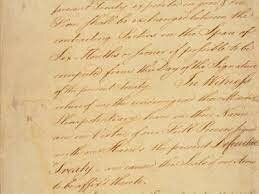 present Treaty in good & due
Form shall be exchanged between the
contracting Parties in the Space of
Six Months or sooner if possible to be
computed from the Day of the Signature
of the present Treaty. In Witness
whereof we the undersigned their Ministers
Plenipotentiary have in their Name
and in Virtue of our Full Powers signed
with our Hands the present Definitive
Treaty, and caused the Seals of our Arms
to be affix'd thereto.